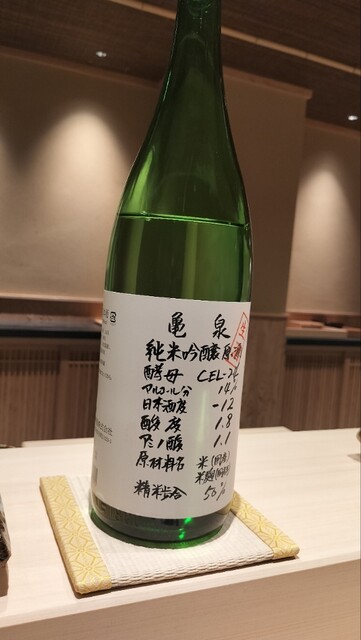 亀泉
純米吟醸原酒
生
酵母 CEL-24
アルコール分 14%
日本酒度 -12
酸度 1.8
アミノ酸 1.1
原材料名 米(国産)
米麹(国産米)
精米歩合 50%